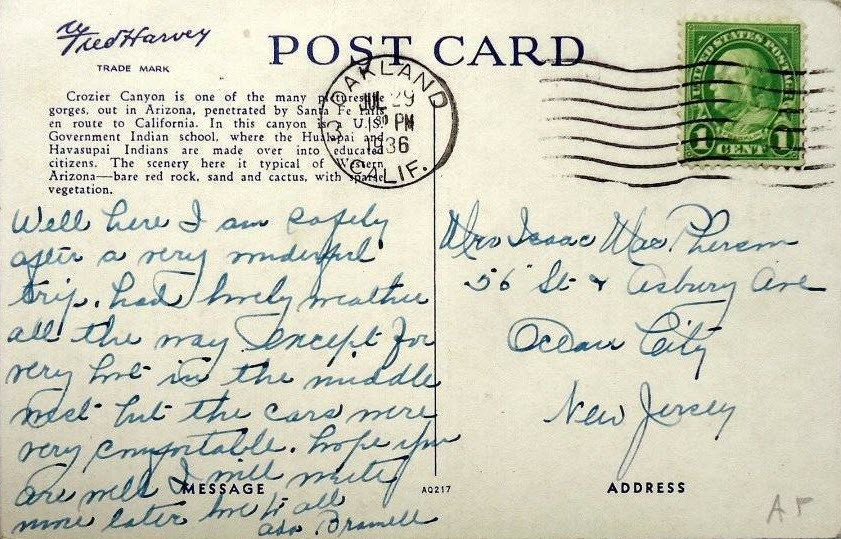 Fred Harvey
TRADE MARK
POST CARD
Crozier Canyon is one of the many picturesque
gorges, out in Arizona, penetrated by Santa Fe rails
en route to California. In this canyon is a U.S.
Government Indian school, where the Hualapai and
Havasupai Indians are made over into educated
citizens. The scenery here it typical of Western
Arizona—bare red rock, sand and cactus, with sparse
vegetation.
OAKLAND
JUL 29
1 30 PM
1936
CALIF.
UNITED STATES POSTAGE
1 CENT 1
Well here I am safely
after a very wonderful
trip. had lovely weather
all the way except for
very hot in the middle
west but the cars were
very comfortable. hope you
are well I will write
more later love to all
MESSAGE
AQ217
Mrs Isaac MacPherson
56 St & Asbury Ave
Ocean City
New Jersey
ADDRESS